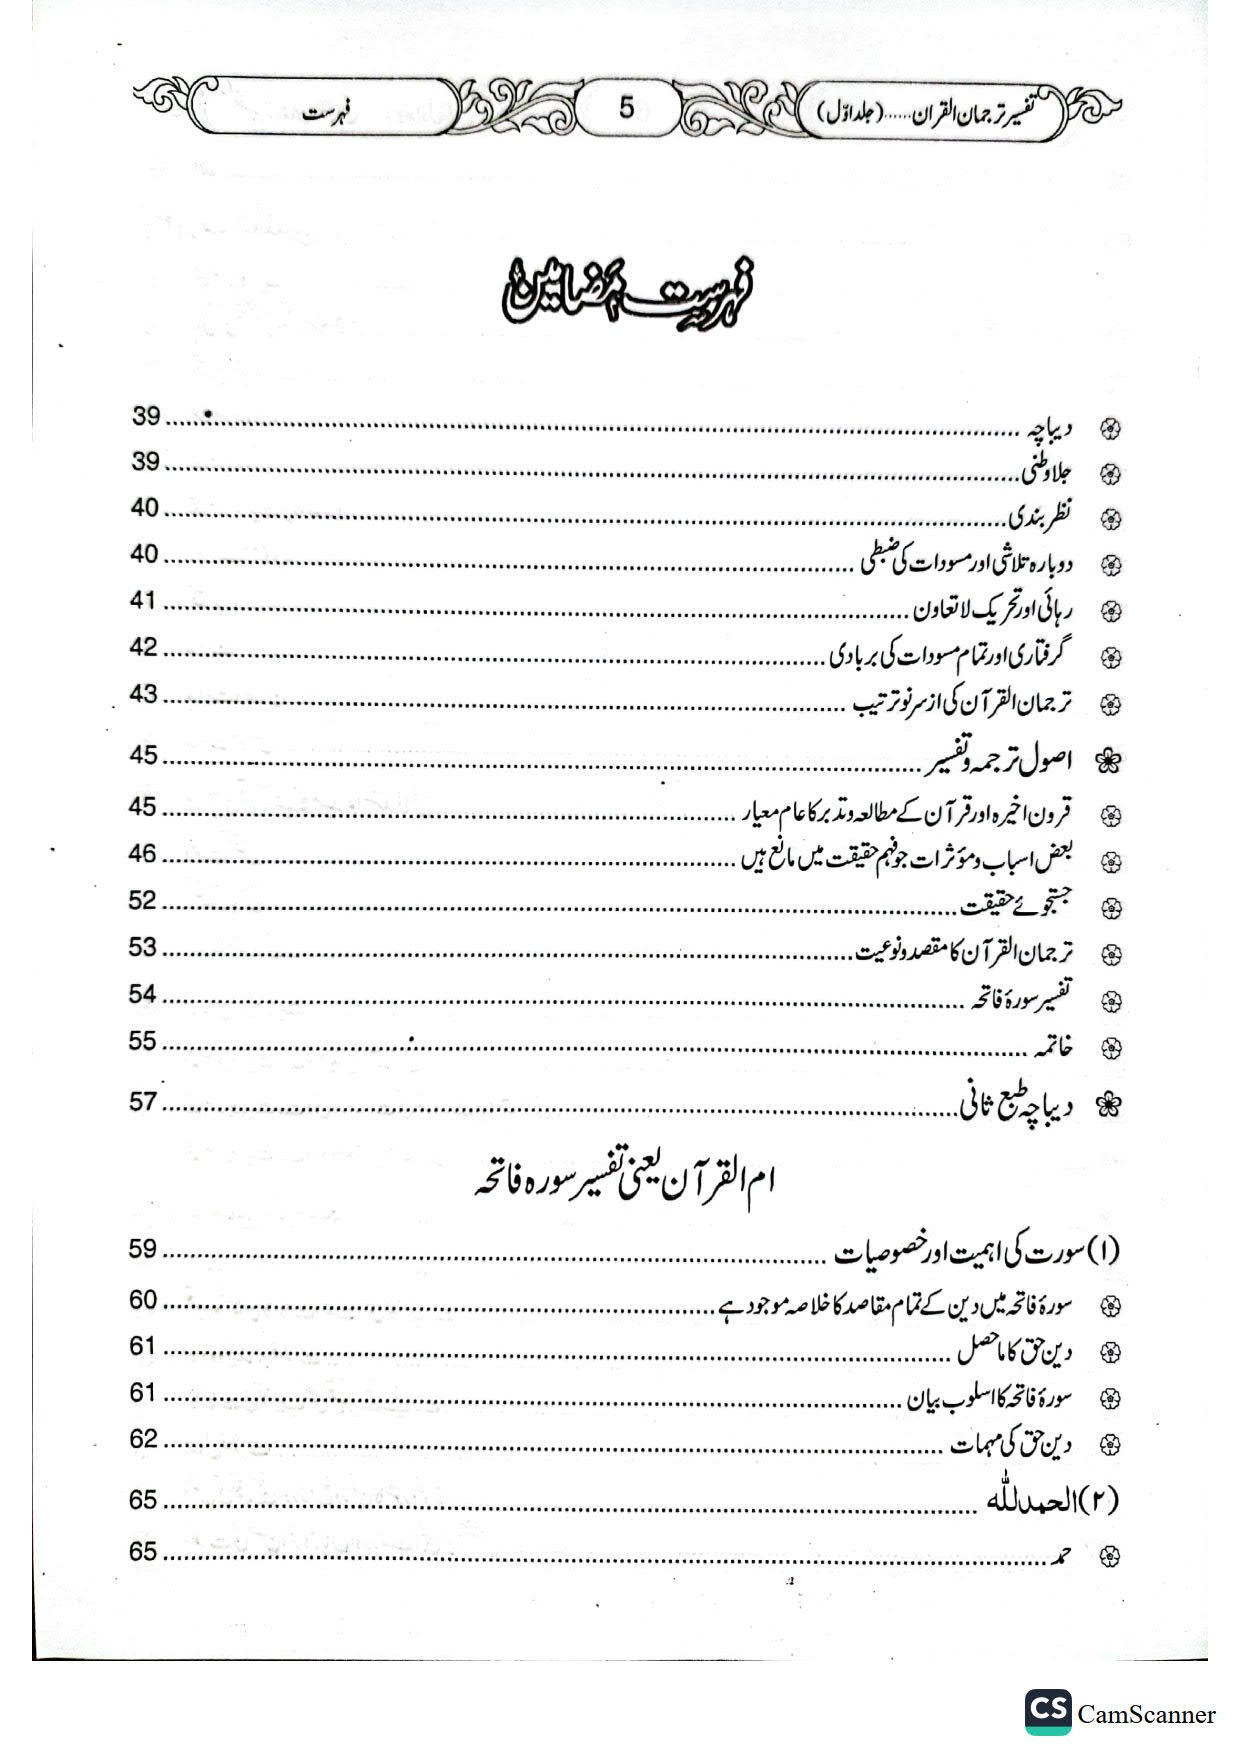 تفسیر ترجمان القران......(جلد اوّل) 5 فہرست
فہرست مضامین
دیباچہ ........ 39
جلا وطنی ........ 39
نظر بندی ........ 40
دوبارہ تلاشی اور مسودات کی ضبطی ........ 40
رہائی اور تحریک لا تعاون ........ 41
گرفتاری اور تمام مسودات کی بربادی ........ 42
ترجمان القرآن کی از سر نو ترتیب ........ 43
اصول ترجمہ و تفسیر ........ 45
قرون اخیرہ اور قرآن کے مطالعہ و تدبر کا عام معیار ........ 45
بعض اسباب و مؤثرات جو فہم حقیقت میں مانع ہیں ........ 46
جستجوئے حقیقت ........ 52
ترجمان القرآن کا مقصد و نوعیت ........ 53
تفسیر سورۂ فاتحہ ........ 54
خاتمہ ........ 55
دیباچہ طبع ثانی ........ 57
ام القرآن یعنی تفسیر سورہ فاتحہ
(۱) سورت کی اہمیت اور خصوصیات ........ 59
سورۂ فاتحہ میں دین کے تمام مقاصد کا خلاصہ موجود ہے ........ 60
دین حق کا ماحصل ........ 61
سورۂ فاتحہ کا اسلوب بیان ........ 61
دین حق کی مہمات ........ 62
(۲) الحمدللّٰہ ........ 65
حمد ........ 65
CS CamScanner